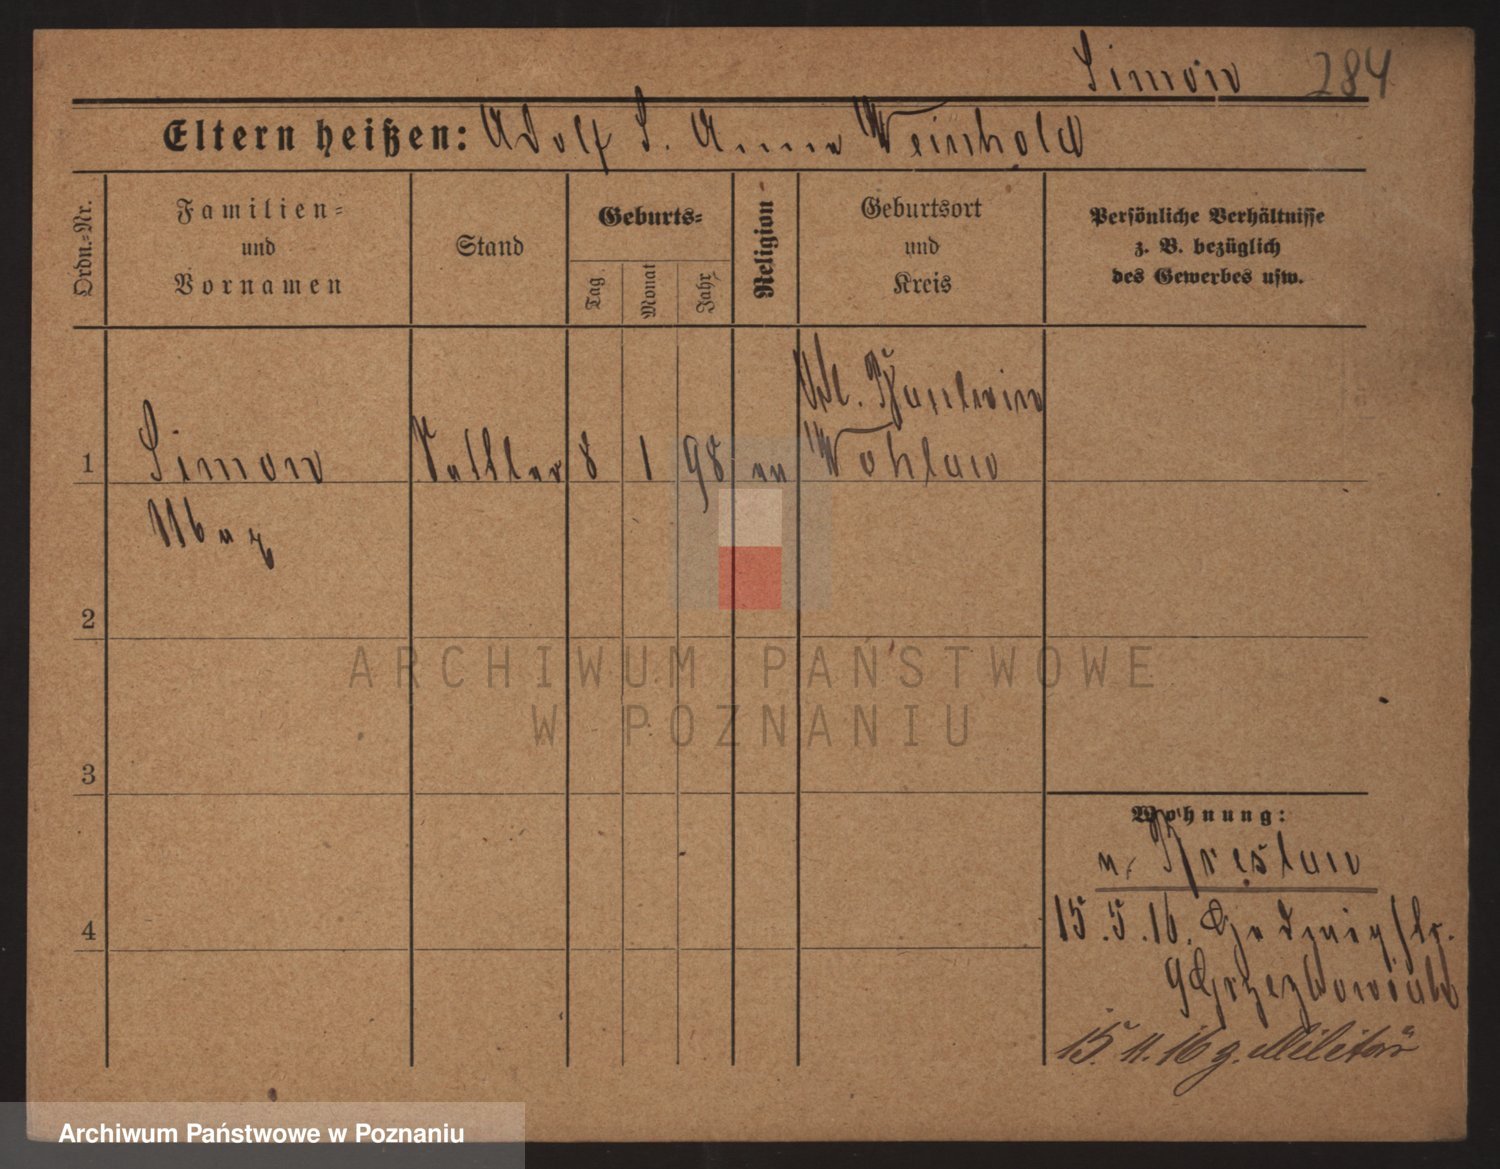 Simon 284
Eltern heißen: Adolf S. Anna Weinhold
Ordn.=Nr.
Familien=
und
Vornamen
Stand
Geburts=
Tag
Monat
Jahr
Religion
Geburtsort
und
Kreis
Persönliche Verhältnisse
z. B. bezüglich
des Gewerbes usw.
1 Simon Sattler 8 1 98 ev Wohlau
Max
2
3
4
Wohnung:
n. Breslau
15.5.16.
15.11.16 z. Militär
ARCHIWUM PAŃSTWOWE
W POZNANIU
Archiwum Państwowe w Poznaniu